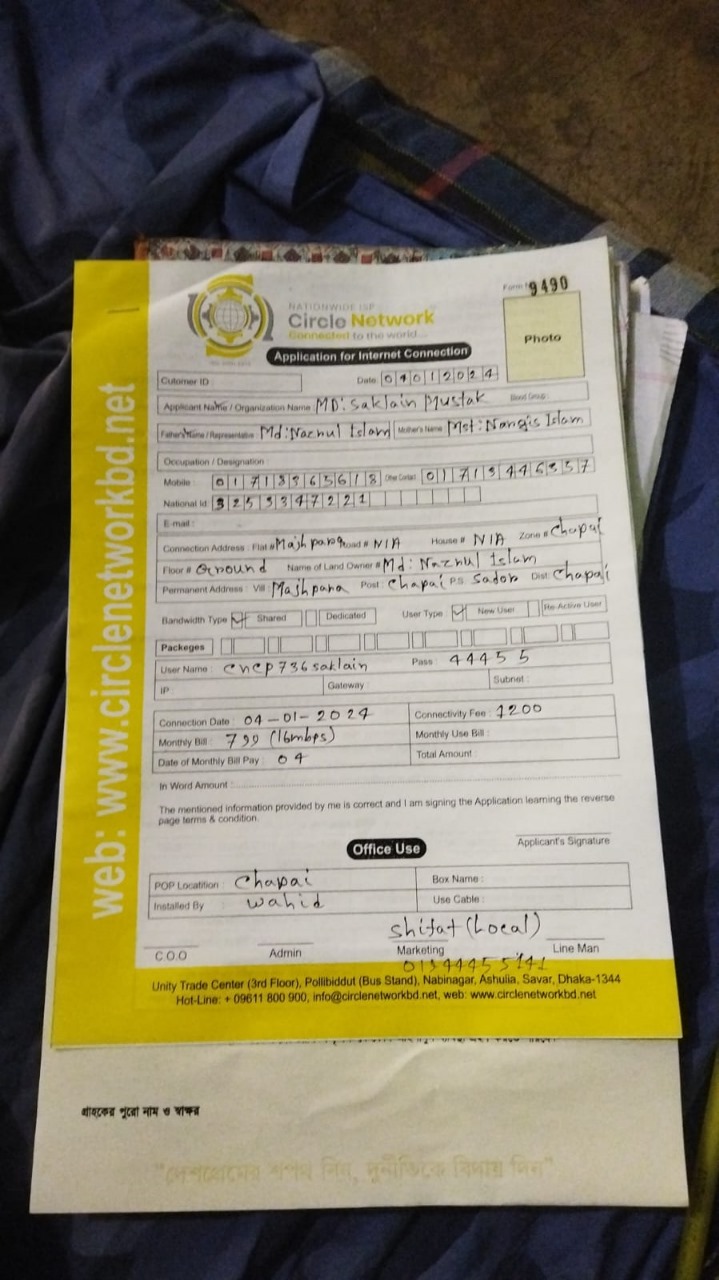 web: www.circlenetworkbd.net
NATIONWIDE ISP
Circle Network
Connected to the world...
Form 9490
Photo
Application for Internet Connection
Cutomer ID
Date 04012024
Applicant Name / Organization Name MD: Saklain Mustak Blood Group:
Father's Name / Representative Md: Naznul Islam Mother's Name Mst: Nangis Islam
Occupation / Designation :
Mobile : 01718365618 Othe Contact 01713446357
National Id: 3253347221
E-mail :
Connection Address : Flat # Majhpara Road # N/A House # N/A Zone # Chapai
Floor # Ground Name of Land Owner # Md: Naznul Islam
Permanent Address : Vill: Majhpara Post: Chapai P.S Sador Dist: Chapai
Bandwidth Type Shared Dedicated User Type New User Re-Active User
Packeges
User Name : cncp736saklain Pass : 44455
IP: Gateway : Subnet :
Connection Date : 04-01-2024 Connectivity Fee : 1200
Monthly Bill : 799 (16mbps) Monthly Use Bill :
Date of Monthly Bill Pay : 04 Total Amount :
In Word Amount :
The mentioned information provided by me is correct and I am signing the Application learning the reverse
page terms & condition.
Applicant's Signature
Office Use
POP Locatition : Chapai Box Name :
Installed By wahid Use Cable :
shifat (Local)
C.O.O Admin Marketing Line Man
Unity Trade Center (3rd Floor), Pollibiddut (Bus Stand), Nabinagar, Ashulia, Savar, Dhaka-1344
Hot-Line: + 09611 800 900, info@circlenetworkbd.net, web: www.circlenetworkbd.net
গ্রাহকের পুরো নাম ও স্বাক্ষর
"দেশপ্রেমের শপথ নিন, দুর্নীতিকে বিদায় দিন"